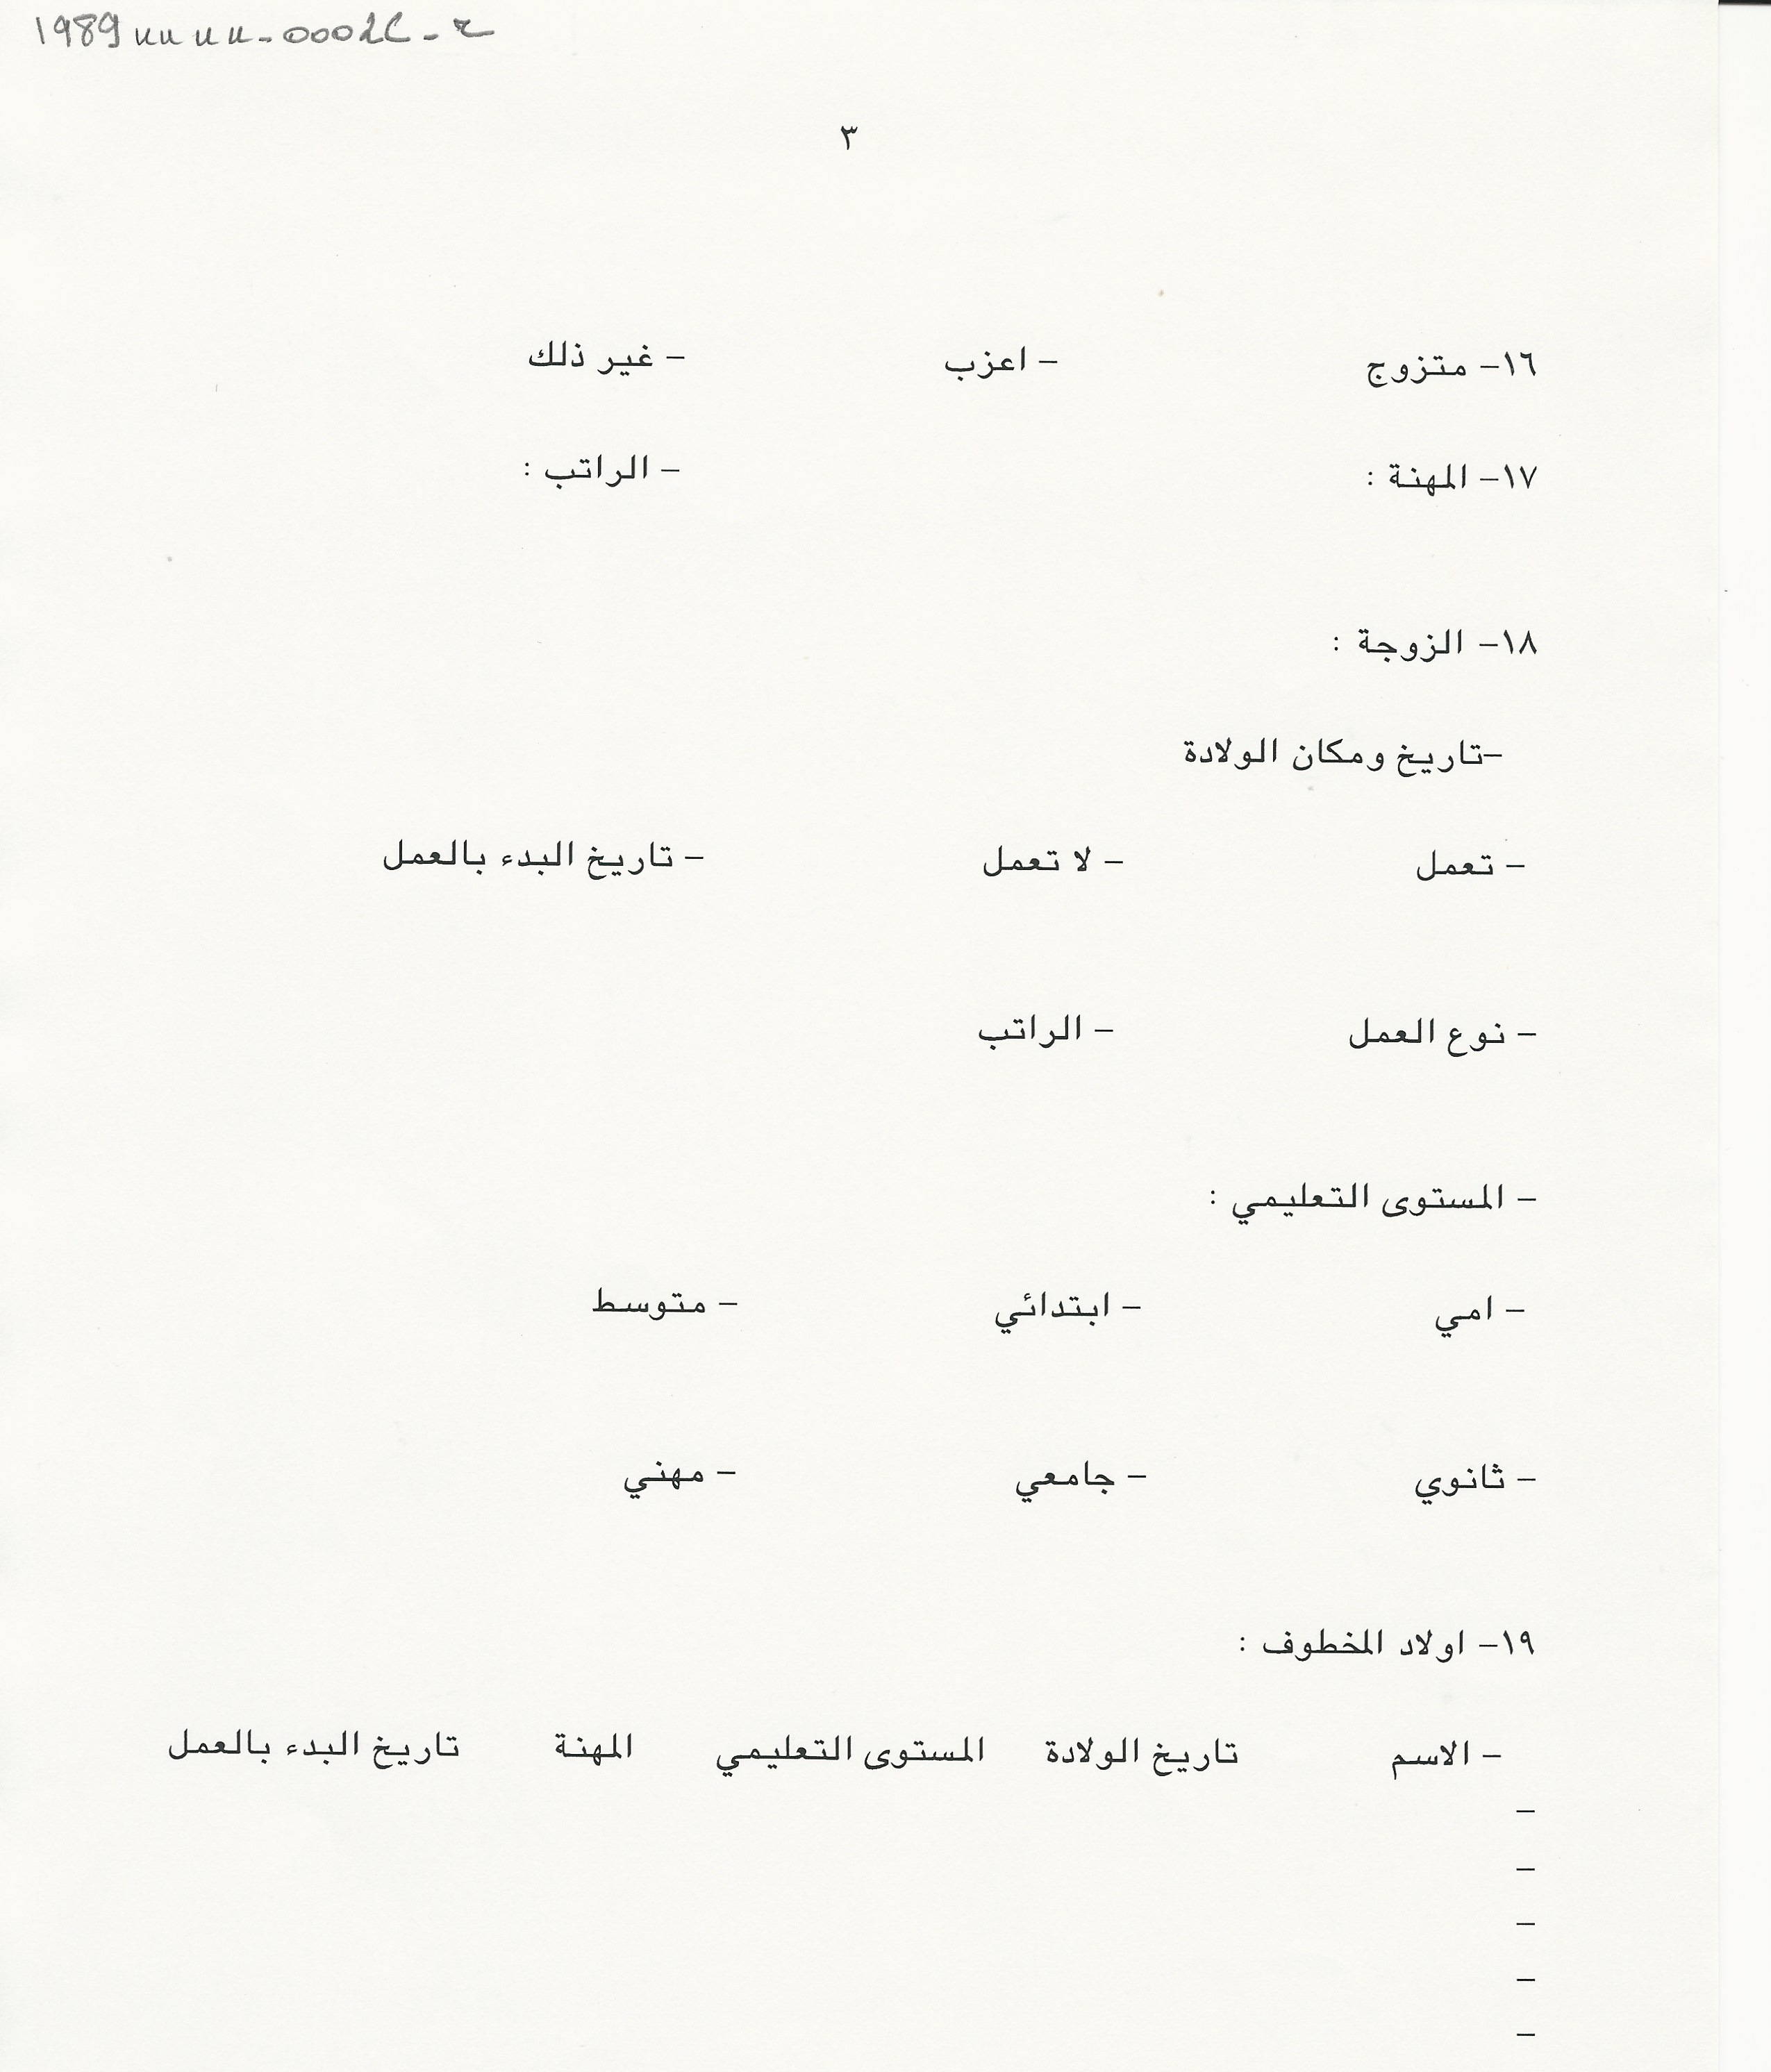 1989uuuu-0002C-r
٣
١٦- متزوج - اعزب - غير ذلك
١٧- المهنة : - الراتب :
١٨- الزوجة :
-تاريخ ومكان الولادة
- تعمل - لا تعمل - تاريخ البدء بالعمل
- نوع العمل - الراتب
- المستوى التعليمي :
- امي - ابتدائي - متوسط
- ثانوي - جامعي - مهني
١٩- اولاد المخطوف :
- الاسم تاريخ الولادة المستوى التعليمي المهنة تاريخ البدء بالعمل
-
-
-
-
-